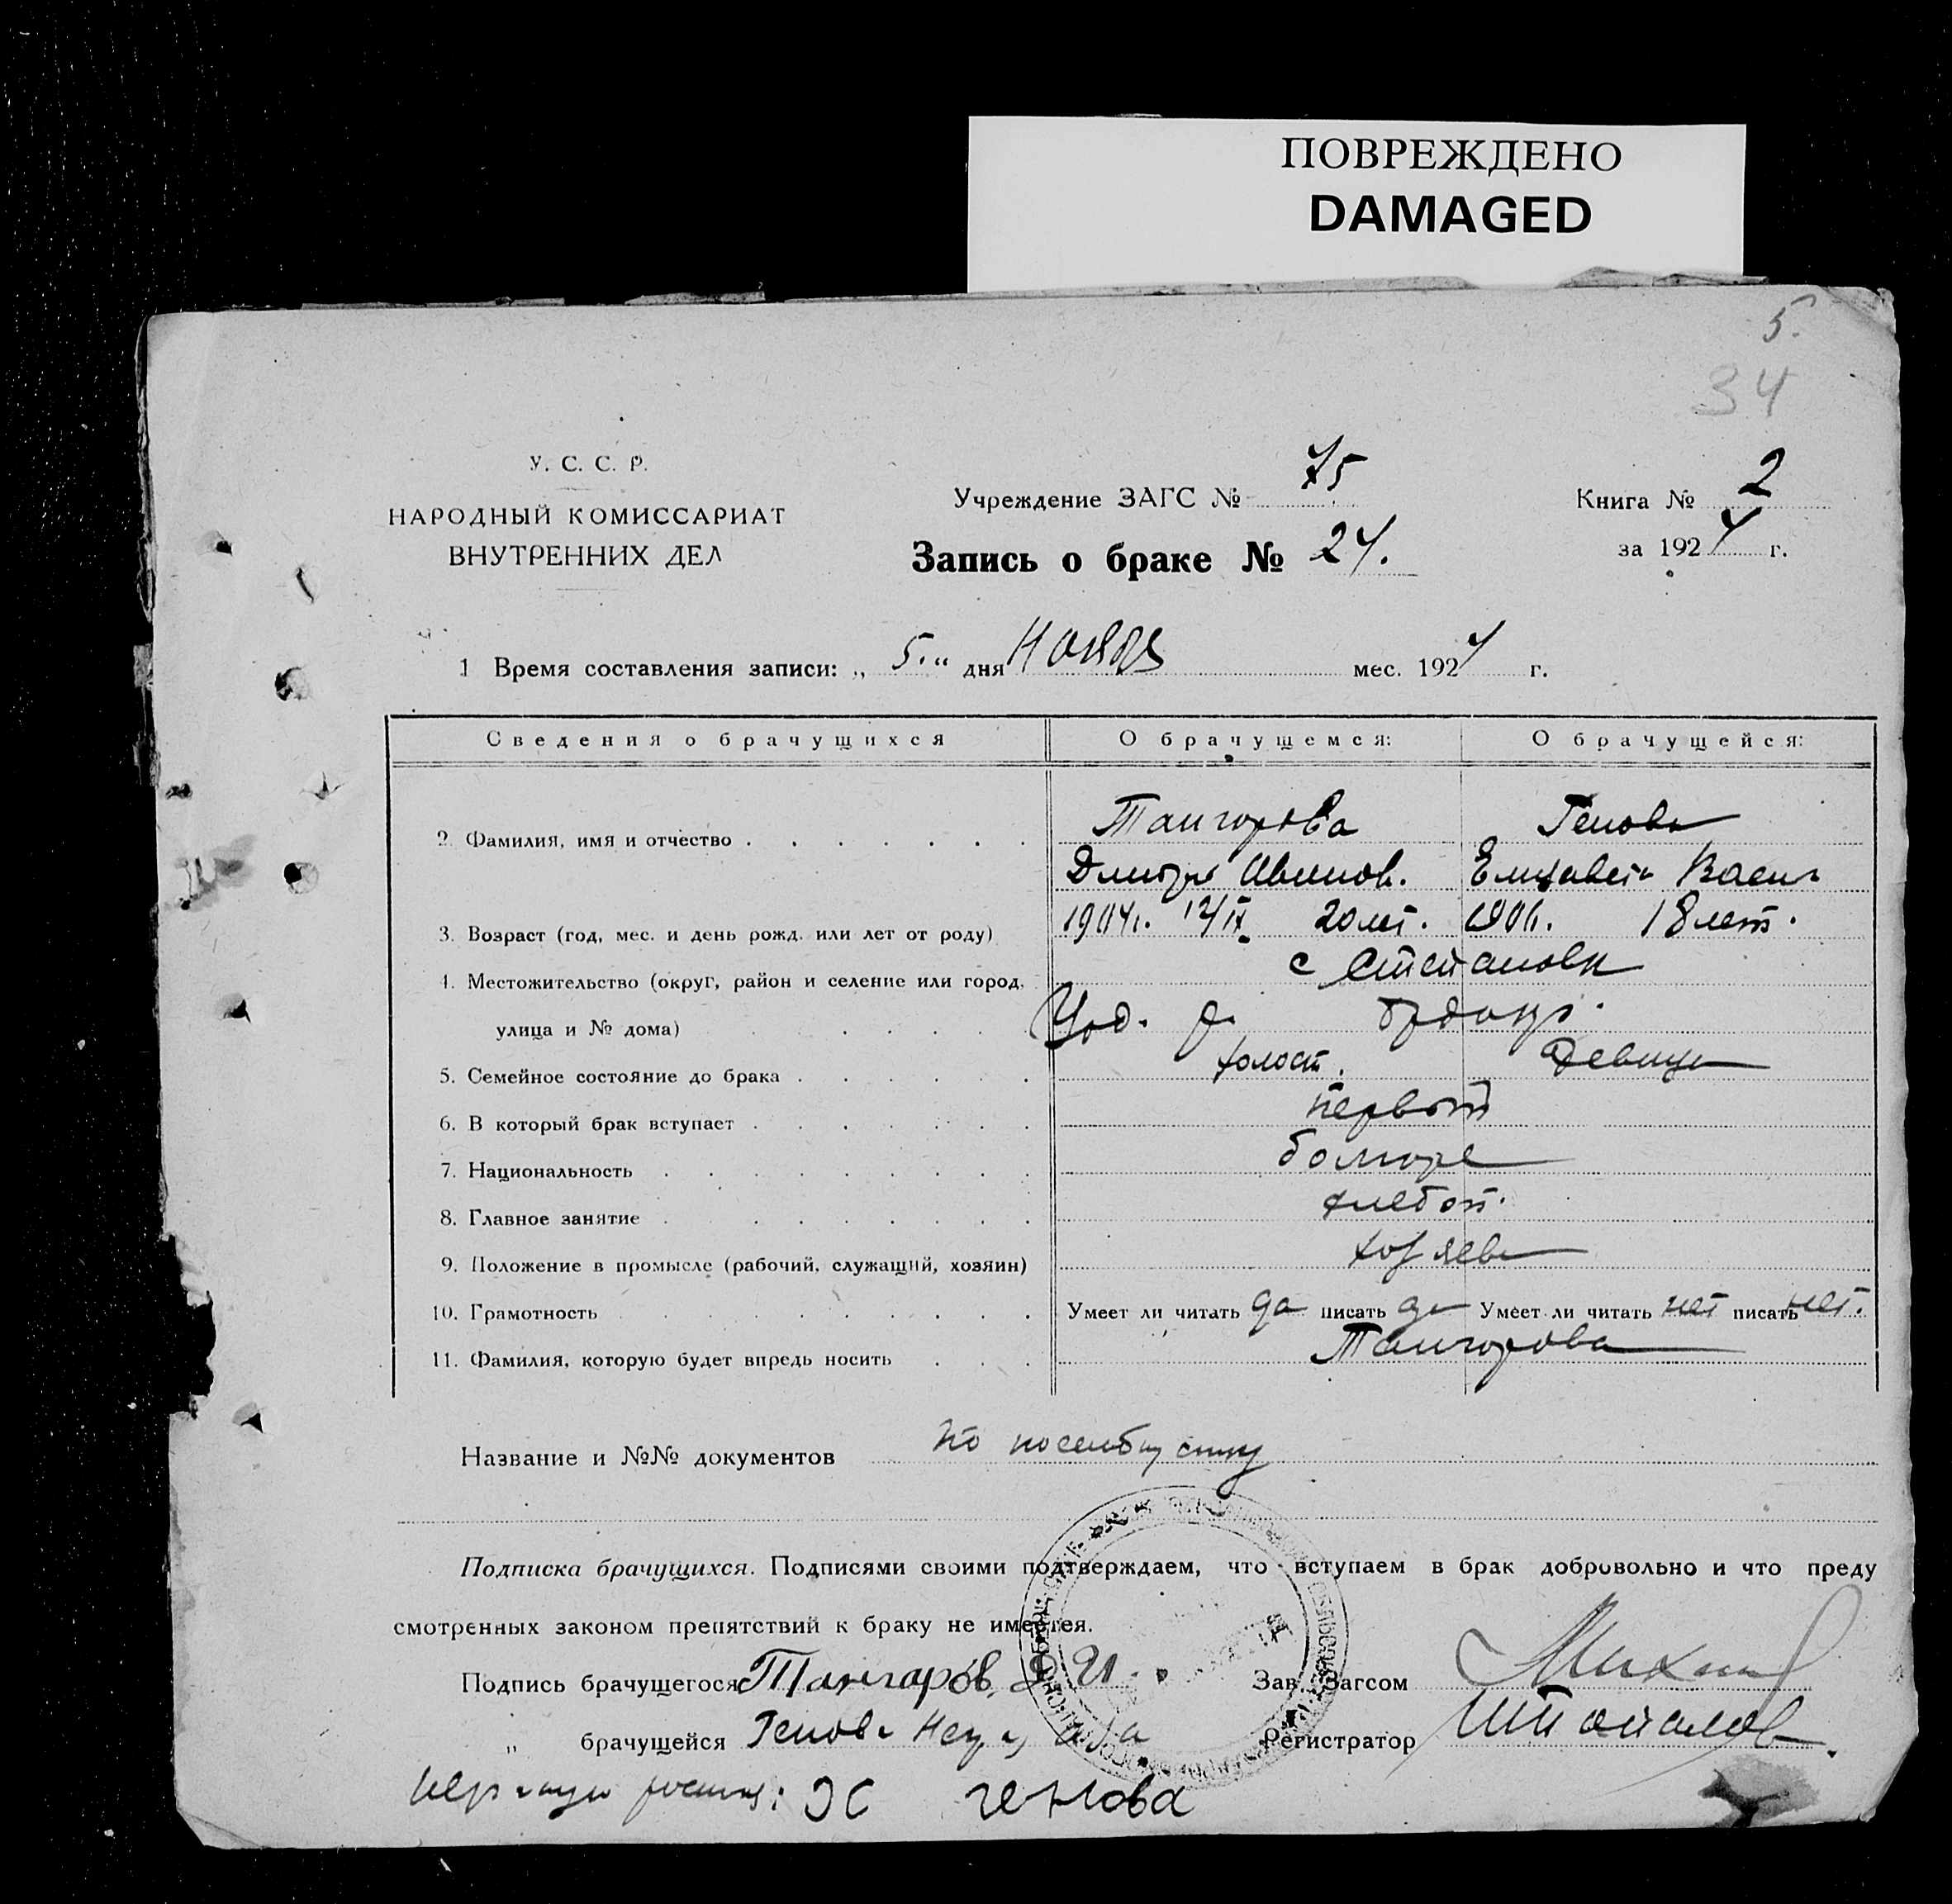 ПОВРЕЖДЕНО
DAMAGED
5.
34
У. С. С. Р.
НАРОДНЫЙ КОМИССАРИАТ
ВНУТРЕННИХ ДЕЛ
Учреждение ЗАГС № 75
Книга № 2
Запись о браке № 24.
за 1924 г.
1 Время составления записи: „ 5. " дня Ноября мес. 1924 г.
Сведения о брачущихся О брачущемся: О брачущейся:
Тангорова Генова
2. Фамилия, имя и отчество
Дмитрий Иванов. Елизавета Васил
3. Возраст (год, мес. и день рожд. или лет от роду) 1904г. 20 лет. 1906. 18 лет.
4. Местожительство (округ, район и селение или город, с Степановк
улица и № дома)
5. Семейное состояние до брака холост. девица
6. В который брак вступает первый
7. Национальность болгаре
8. Главное занятие хлебоп.
9. Положение в промысле (рабочий, служащий, хозяин) хозяева
10. Грамотность Умеет ли читать да писать да Умеет ли читать нет писать нет.
11. Фамилия, которую будет впредь носить Тангорова
Название и №№ документов по посемейному списку
Подписка брачущихся. Подписями своими подтверждаем, что вступаем в брак добровольно и что преду
смотренных законом препятствий к браку не имеется.
Подпись брачущегося Тангаров Д И. Зав. Загсом
„ брачущейся Генова Регистратор
генова